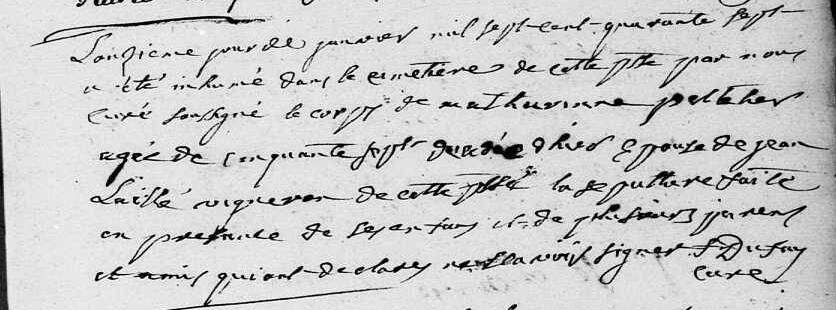 Lonzieme jour de janvier mil sept cent quarante sept
a eté inhumé dans le cimetière de cette psse par nous
curé soussigné le corps de mathurinne peltier
agée de cinquante sept decedée d'hier Epouse de jean
Laillé vigneron de cette psse la sepulture faite
en presence de ses enfans et de plusieurs parens
et amis qui ont declarez ne scavoir signer f Dufay
Curé